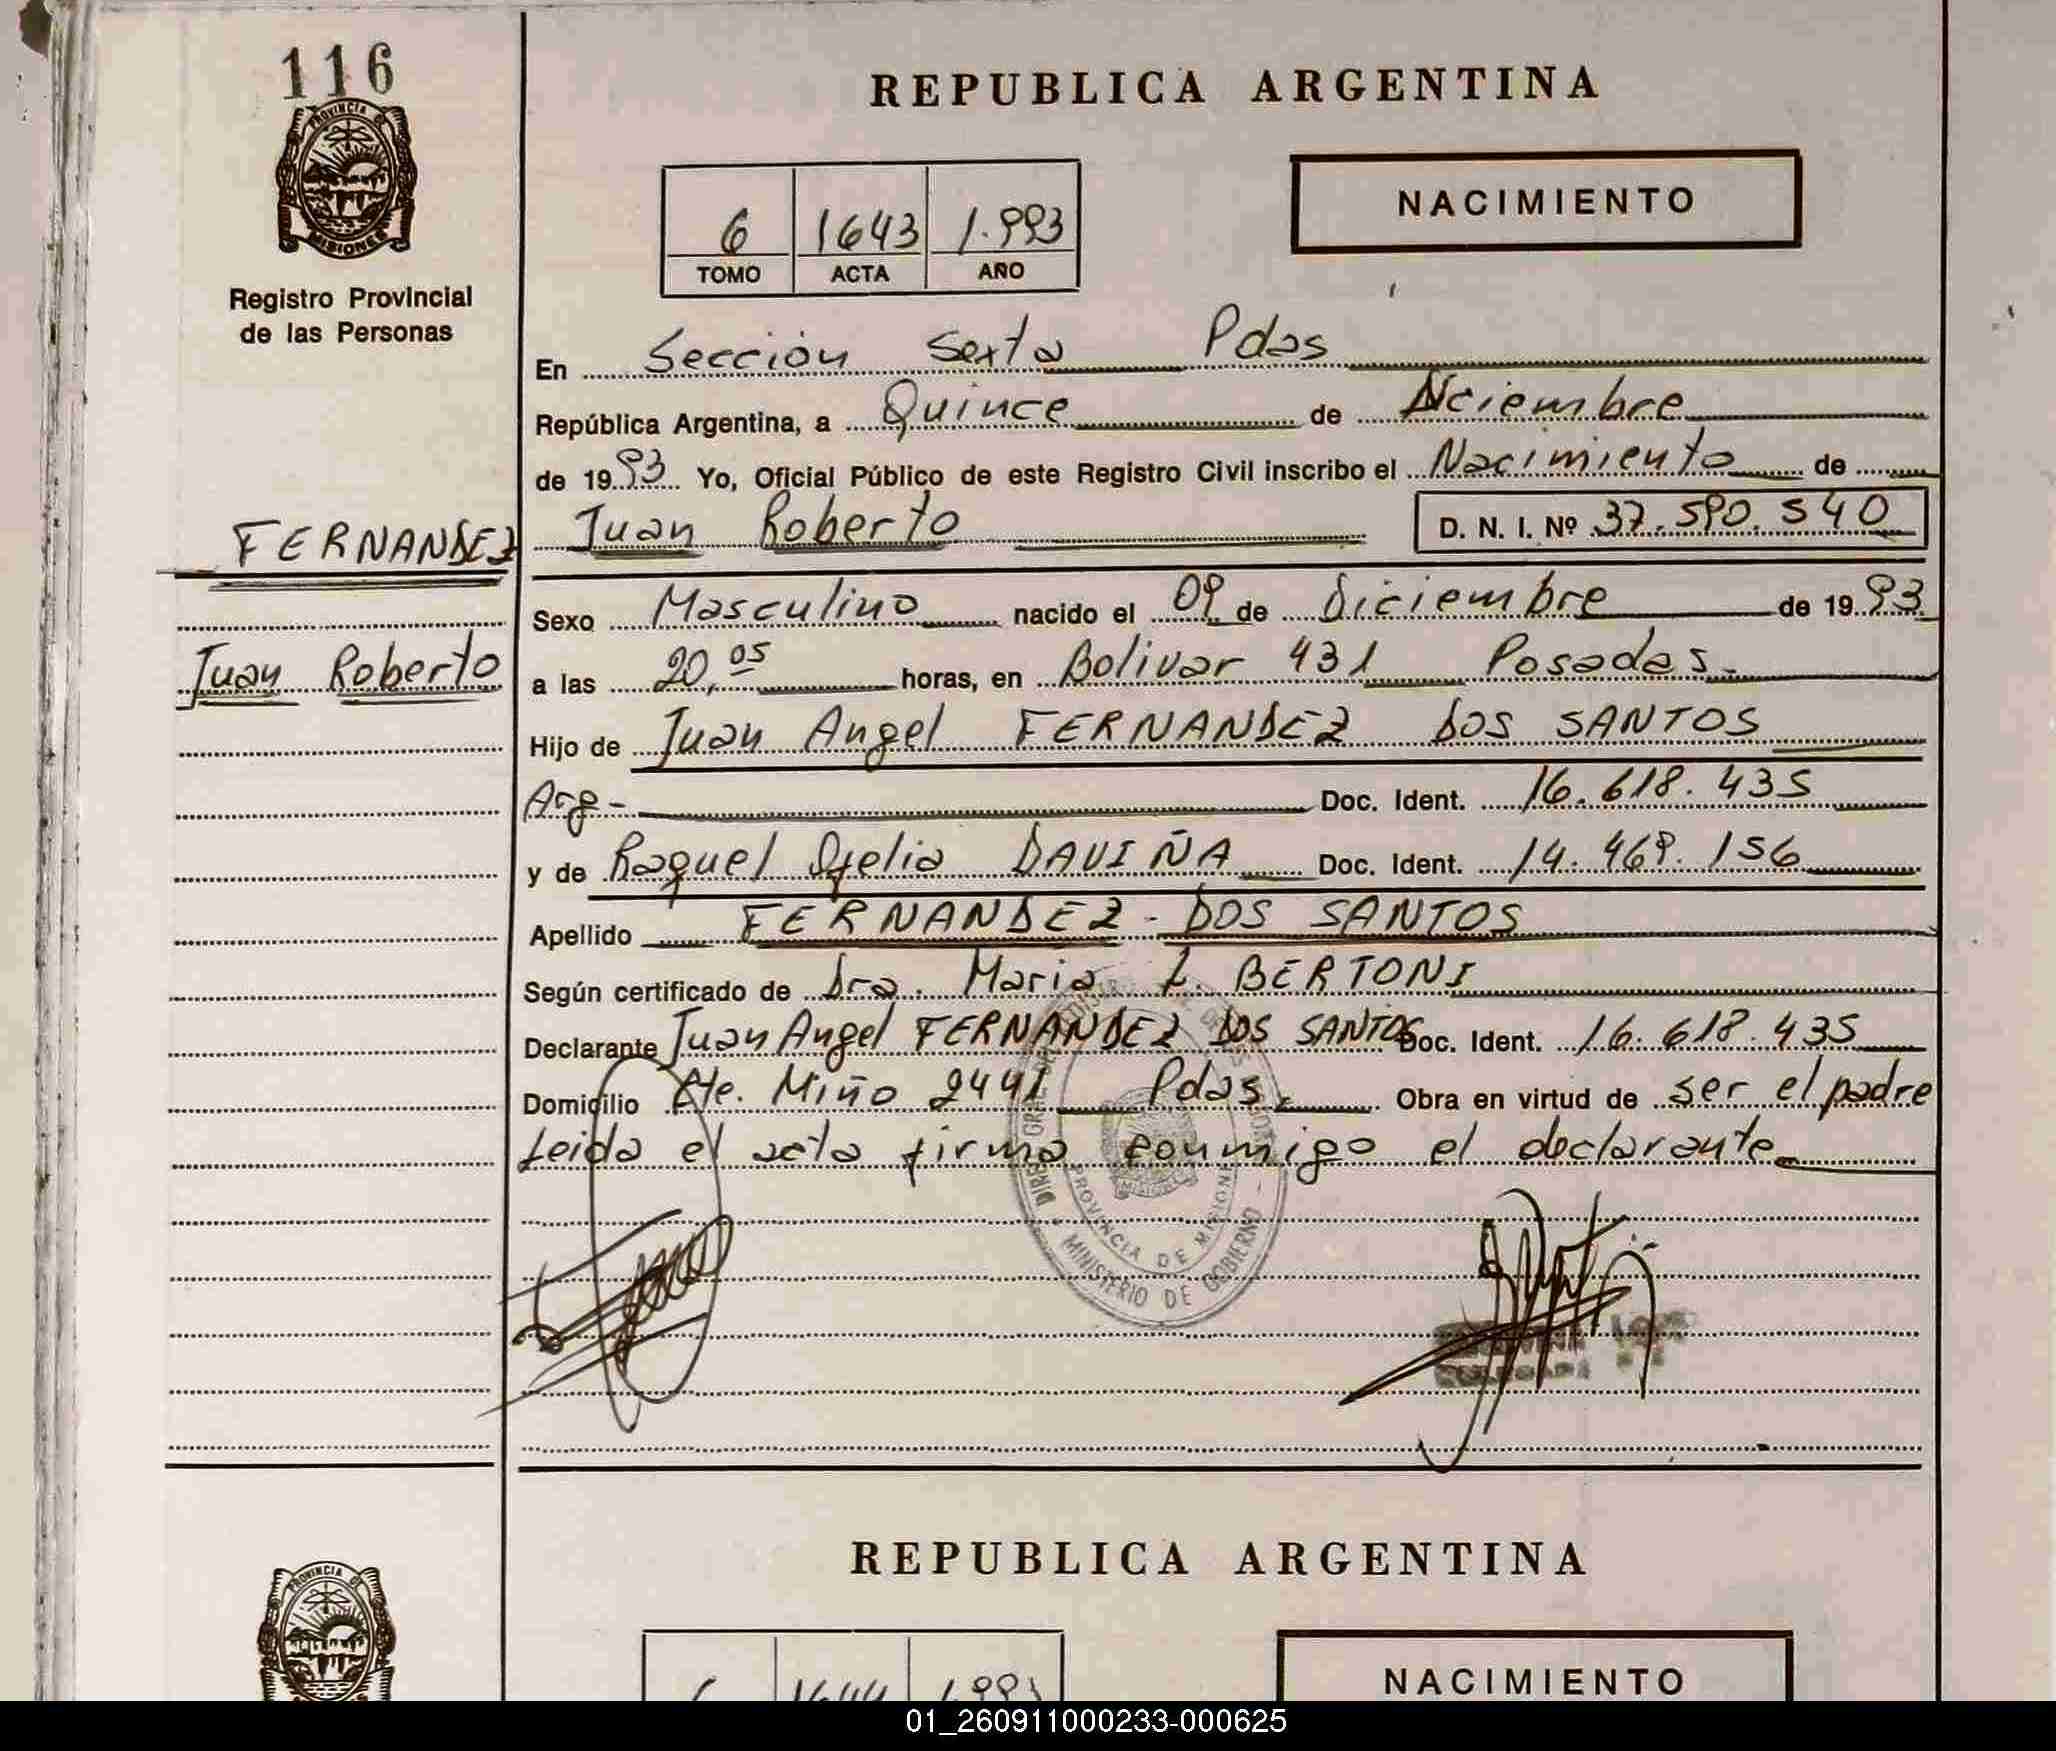 116
PROVINCIA DE
MISIONES
Registro Provincial
de las Personas
REPUBLICA ARGENTINA
NACIMIENTO
6 1643 1.993
TOMO ACTA AÑO
En Sección Sexta Pdas
República Argentina, a Quince de Diciembre
de 1993 Yo, Oficial Público de este Registro Civil inscribo el Nacimiento de
FERNANDEZ
Juan Roberto D. N. I. Nº 37.590.540
Sexo Masculino nacido el 09 de Diciembre de 1993
Juan Roberto
a las 20,05 horas, en Bolivar 431 Posadas.-
Hijo de Juan Angel FERNANDEZ DOS SANTOS
Arg- Doc. Ident. 16.618.435
y de Raquel Ofelia DAVIÑA Doc. Ident. 14.469.156
Apellido FERNANDEZ - DOS SANTOS
Según certificado de Dra. Maria L. BERTONI
Declarante Juan Angel FERNANDEZ DOS SANTOS Doc. Ident. 16.618.435
Domicilio Cte. Miño 2441 Pdas. Obra en virtud de ser el padre
Leida el acta firma conmigo el declarante
PROVINCIA DE MISIONES
MINISTERIO DE GOBIERNO
REPUBLICA ARGENTINA
PROVINCIA DE
6 1644 1.993
NACIMIENTO
01_260911000233-000625